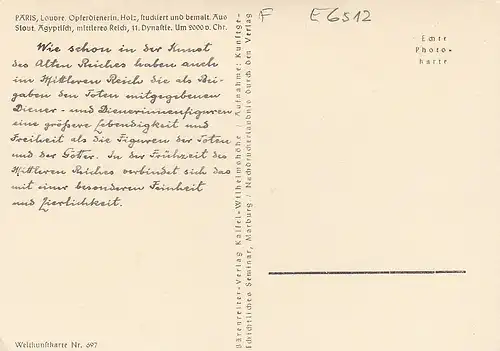 PARIS, Louvre. Opferdienerin. Holz, stuckiert und bemalt. Aus
Siout. Ägyptisch, mittleres Reich, 11. Dynastie. Um 2000 v. Chr.
Wie schon in der Kunst
des Alten Reiches haben auch
im Mittleren Reich die als Bei-
gaben den Toten mitgegebenen
Diener- und Dienerinnenfiguren
eine größere Lebendigkeit und
Freiheit als die Figuren der Toten
und der Götter. In der Frühzeit des
Mittleren Reiches verbindet sich das
mit einer besonderen Feinheit
und Zierlichkeit.
Weltkunstkarte Nr. 697
Bärenreiter-Verlag Kassel-Wilhelmshöhe / Aufnahme: Kunstge-
schichtliches Seminar, Marburg / Nachdruckerlaubnis durch den Verlag
F E6512
Echte
Photo-
karte